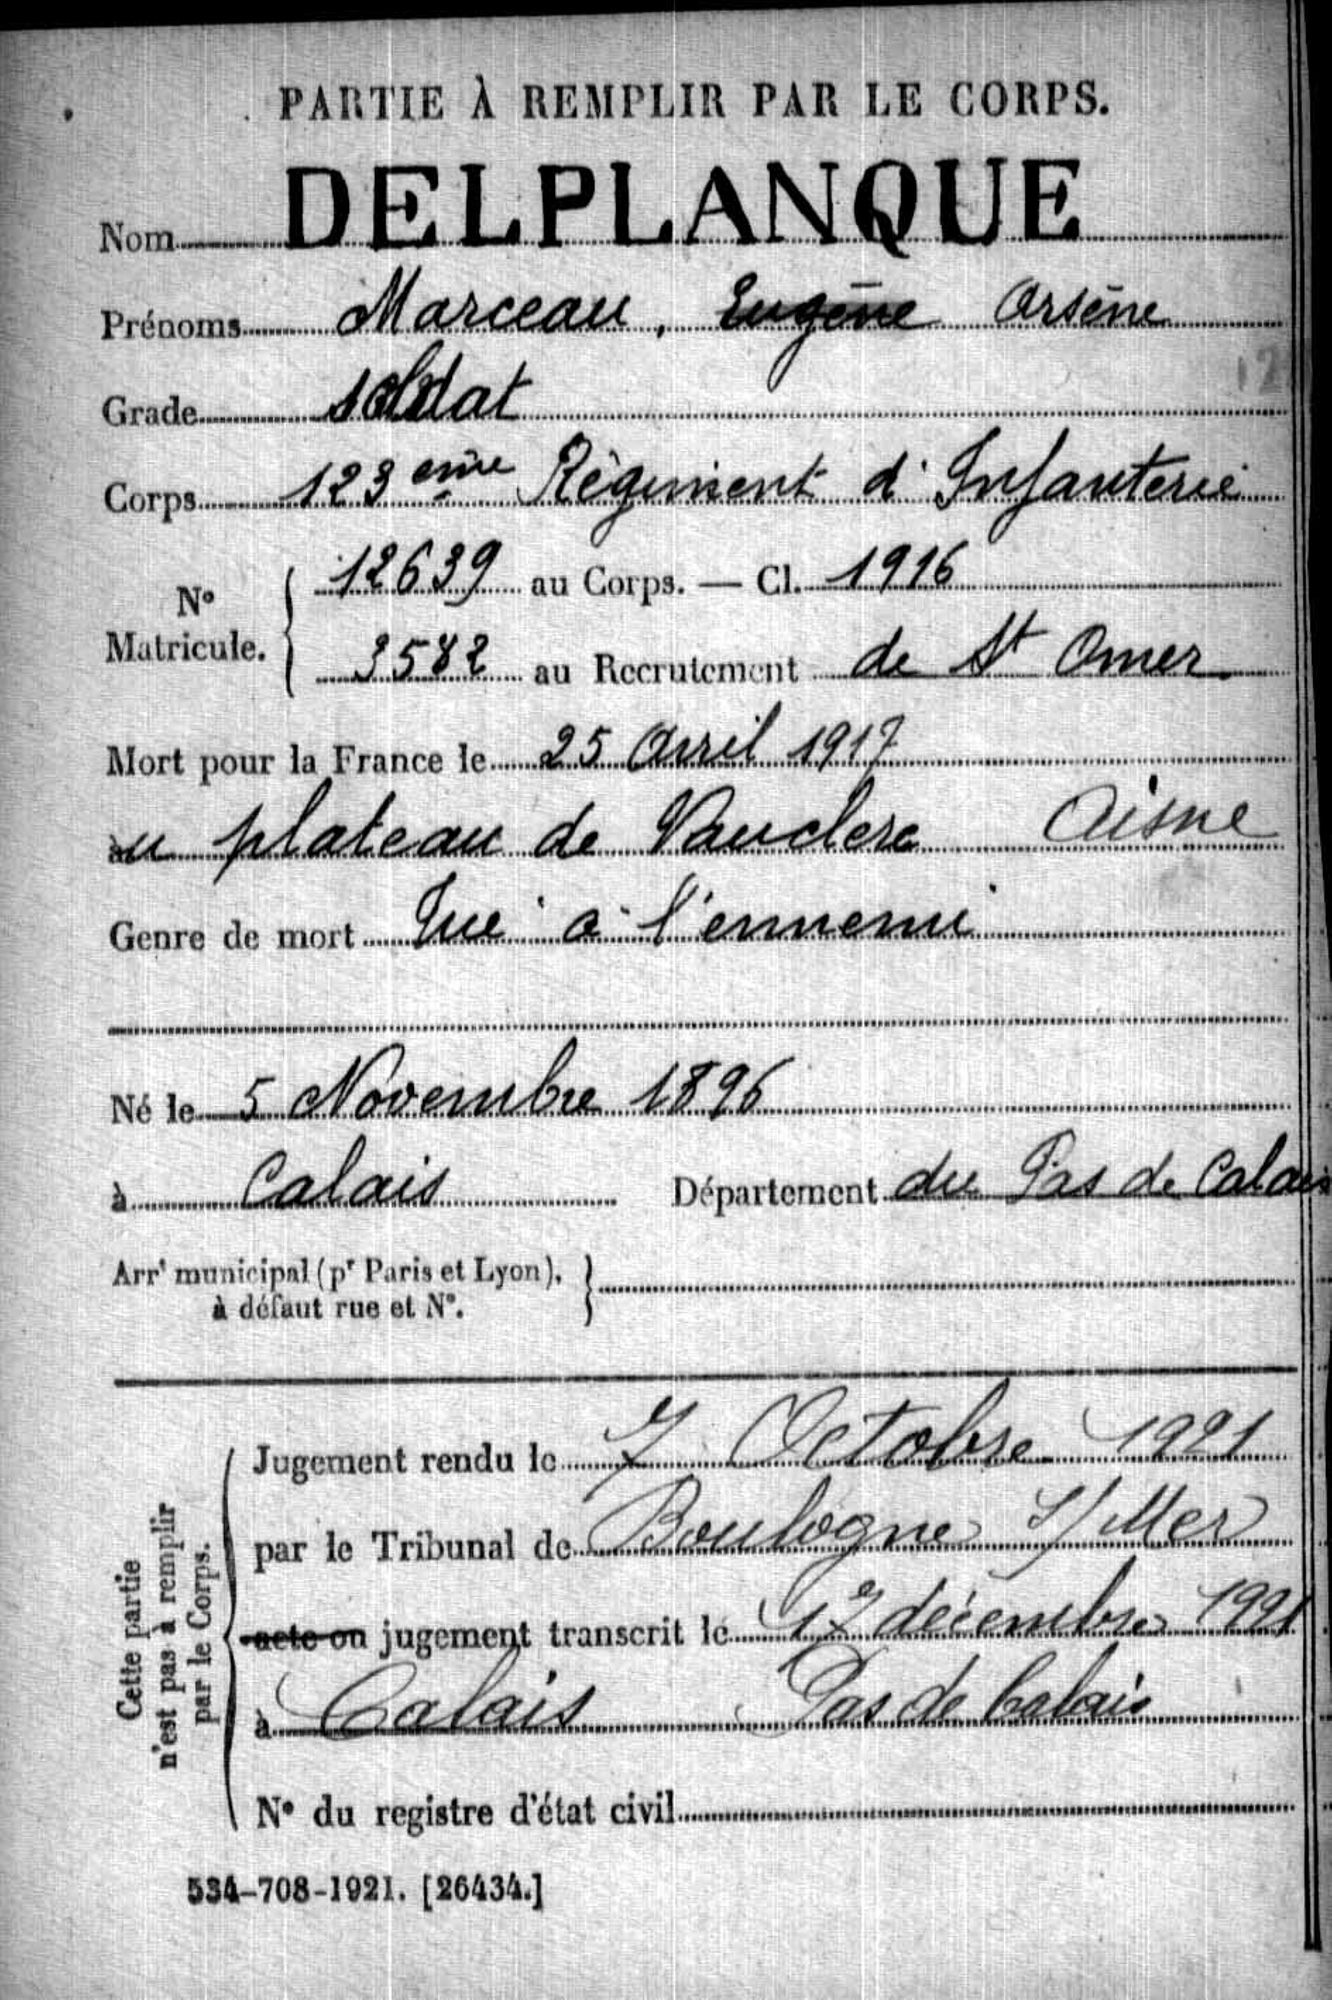 PARTIE À REMPLIR PAR LE CORPS.
Nom DELPLANQUE
Prénoms Marceau, Eugène Arsène
Grade soldat
Corps 123 ème Régiment d'Infanterie
N° Matricule. 12639 au Corps. — Cl. 1916
3582 au Recrutement de St Omer
Mort pour la France le 25 Avril 1917
au plateau de Vauclerc Aisne
Genre de mort Tué à l'ennemi
Né le 5 Novembre 1896
à Calais Département du Pas de Calais
Arrt municipal (pr Paris et Lyon),
à défaut rue et N°.
Cette partie
n'est pas à remplir
par le Corps.
Jugement rendu le 7 Octobre 1921
par le Tribunal de Boulogne s/ Mer
acte ou jugement transcrit le 17 décembre 1921
à Calais Pas de Calais
N° du registre d'état civil
534-708-1921. [26434.]